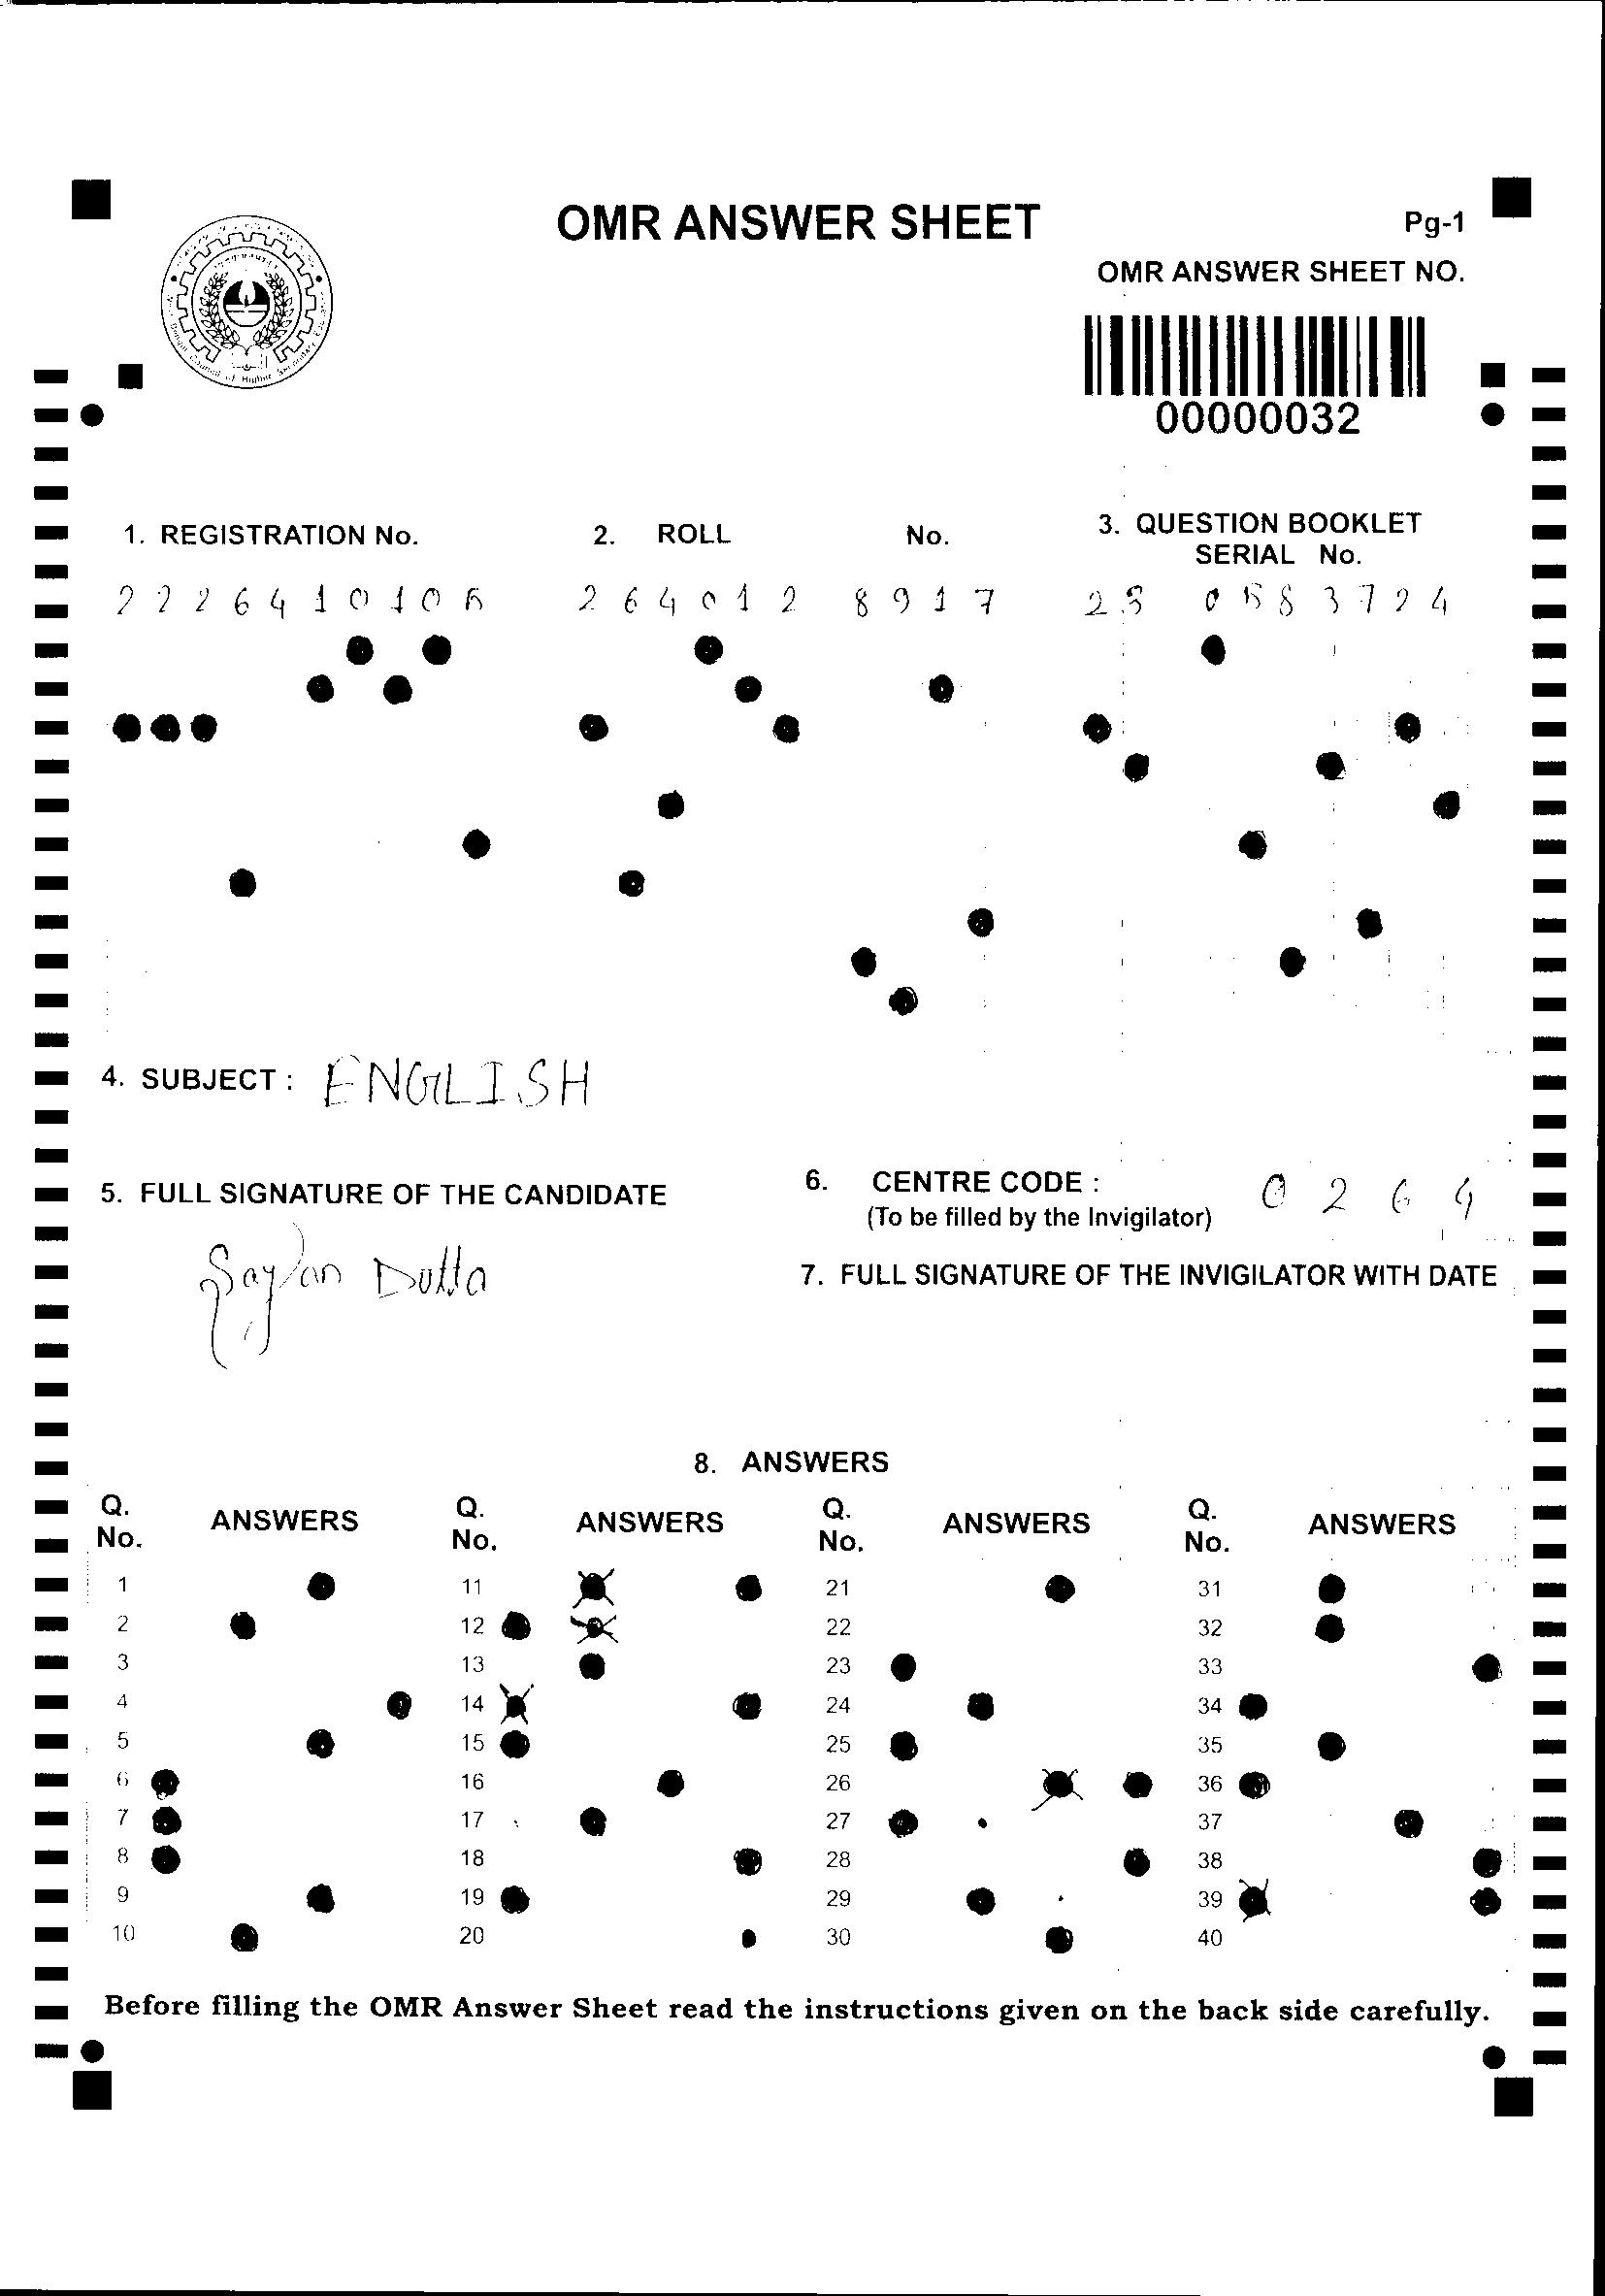 OMR ANSWER SHEET
Pg-1
OMR ANSWER SHEET NO.
00000032
1. REGISTRATION No.
2. ROLL No.
3. QUESTION BOOKLET
SERIAL No.
2226410105
264012 8917
23 0583724
4. SUBJECT : ENGLISH
5. FULL SIGNATURE OF THE CANDIDATE
6. CENTRE CODE : 0264
(To be filled by the Invigilator)
Sayan Dutta
7. FULL SIGNATURE OF THE INVIGILATOR WITH DATE
8. ANSWERS
Q. Q. Q. Q.
No. ANSWERS No. ANSWERS No. ANSWERS No. ANSWERS
1 11 21 31
2 12 22 32
3 13 23 33
4 14 24 34
5 15 25 35
6 16 26 36
7 17 27 37
8 18 28 38
9 19 29 39
10 20 30 40
Before filling the OMR Answer Sheet read the instructions given on the back side carefully.